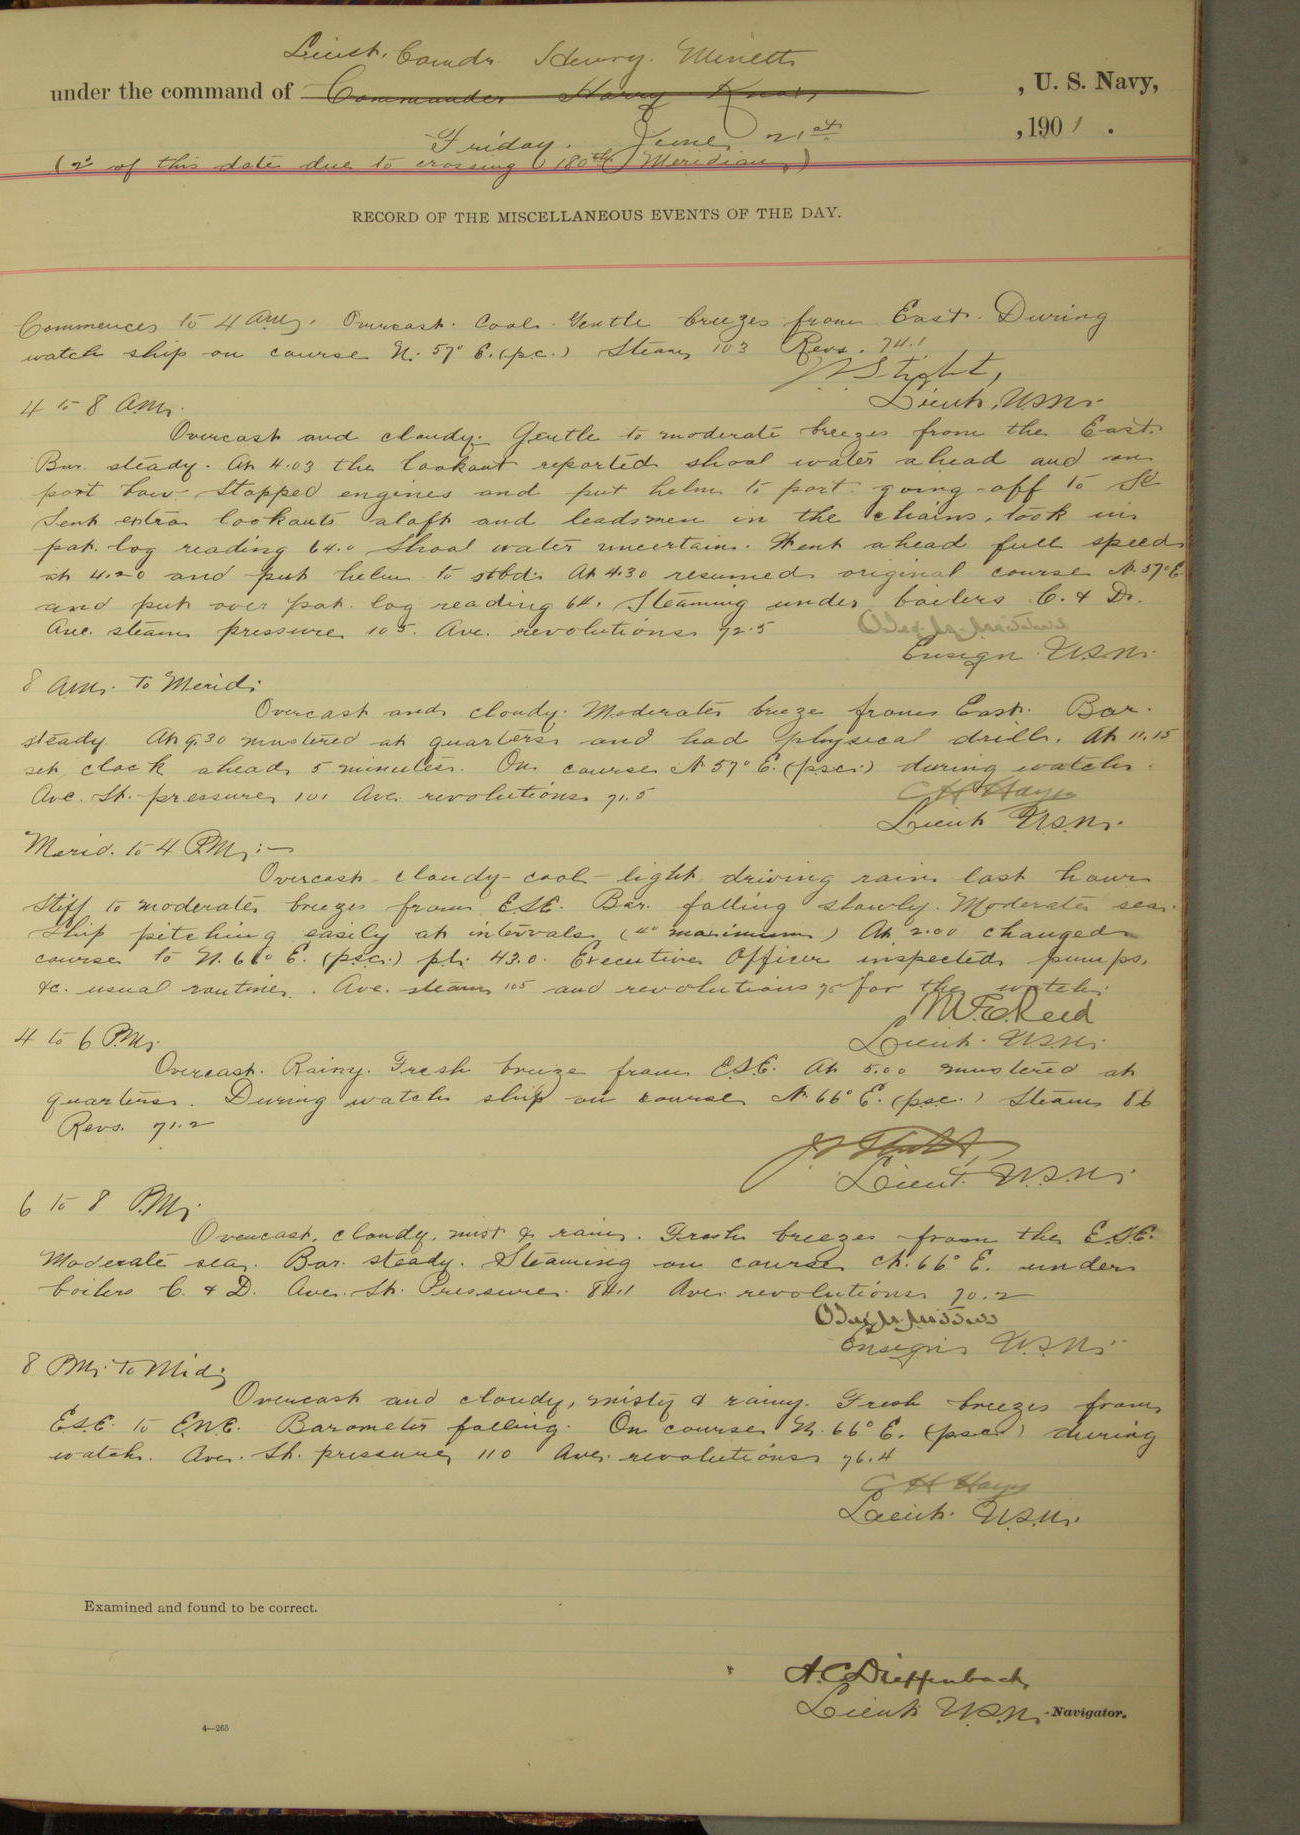 Lieut. Comdr. Henry Minett
under the command of Commander Harry Knox, U. S. Navy,
Friday, June 21st, 1901.
(2d of this date due to crossing 180th Meridian,)
RECORD OF THE MISCELLANEOUS EVENTS OF THE DAY.
Commences to 4 A.M. Overcast. Cool. Gentle breezes from East. During
watch ship on course N. 57° E. (p.c.) Steam 103 Revs. 74.1
Lieut. U.S.N.
4 to 8 A.M.
Overcast and cloudy. Gentle to moderate breezes from the East.
Bar. steady. At 4.03 the lookout reported shoal water ahead and on
port bow. Stopped engines and put helm to port going off to SE
Sent extra lookouts aloft and leadsmen in the chains, took in
pat. log reading 64.0 Shoal water uncertain. Went ahead full speed
at 4.20 and put helm to stbd. At 4.30 resumed original course N. 57° E
and put over pat. log reading 64. Steaming under boilers C. & D.
Ave. steam pressure 105. Ave. revolutions 72.5
Ensign U.S.N.
8 A.M. to Merid:
Overcast and cloudy. Moderate breeze from East. Bar.
steady At 9.30 mustered at quarters and had physical drill. At 11.15
set clock ahead 5 minutes. On course N 57° E. (psc.) during watch.
Ave. St. pressure 101 Ave. revolutions 71.5
C H Hayes
Lieut U.S.N.
Merid. to 4 P.M.:—
Overcast - cloudy - cool - light driving rain last hour
Stiff to moderate breezes from ESE. Bar. falling slowly. Moderate sea.
Ship pitching easily at intervals (4° maximum) At 2.00 changed
course to N. 66° E. (psc.) pl. 43.0. Executive Officer inspected pumps,
&c. usual routine. Ave. steam 105 and revolutions 75 for the watch.
M.E. Reed
Lieut. U.S.N.
4 to 6 P.M.
Overcast. Rainy. Fresh breeze from ESE. At 5.00 mustered at
quarters. During watch ship on course N. 66° E. (psc.) Steam 86
Revs. 71.2
Lieut. U.S.N.
6 to 8 P.M.
Overcast, cloudy, mist & rain. Fresh breezes from the ESE.
Moderate sea. Bar. steady. Steaming on course N. 66° E. under
boilers C. & D. Ave. St. Pressure 84.1 Ave. revolutions 70.2
Ensign U.S.N.
8 P.M. to Mid:
Overcast and cloudy, misty & rainy. Fresh breezes from
ESE. to ENE. Barometer falling. On course N. 66° E. (psc) during
watch. Ave. St. pressure 110 Ave. revolutions 76.4
C H Hayes
Lieut. U.S.N.
Examined and found to be correct.
A. C. Dieffenbach
Lieut U.S.N. Navigator.
4—265